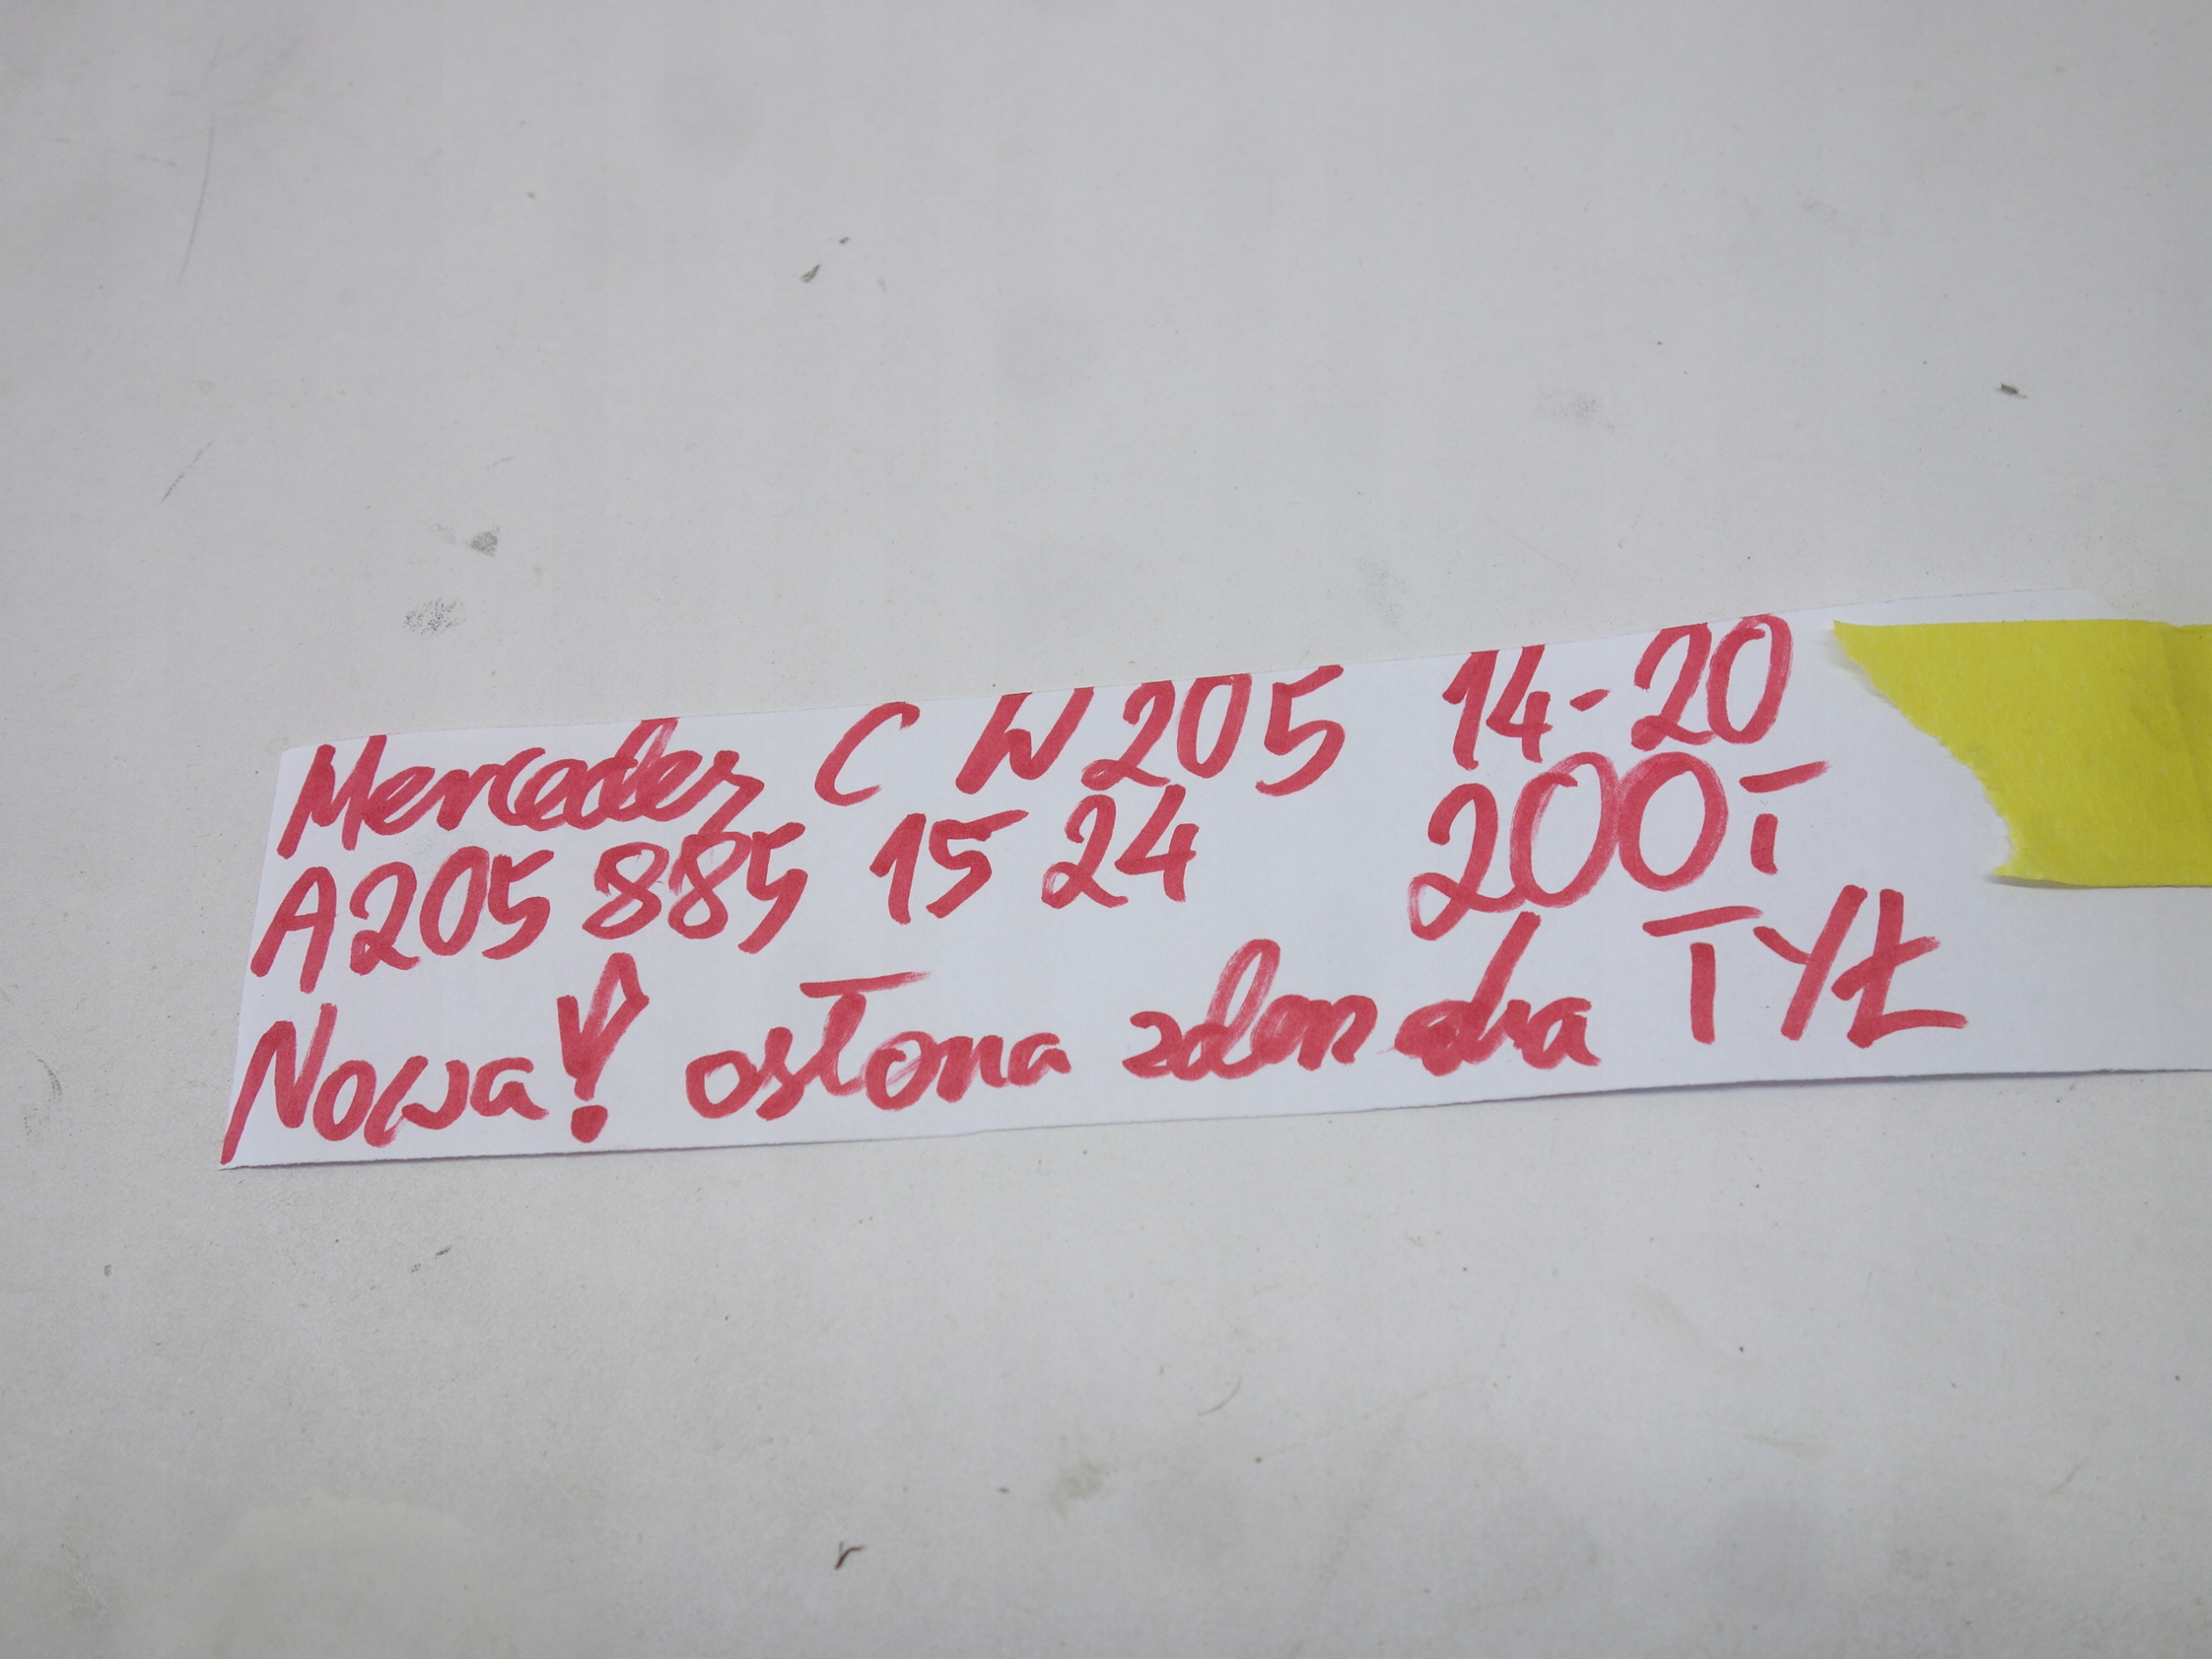 Mercedes C W205 14-20
A205 885 15 24 200T
Nowa! osłona zderzaka TYŁ